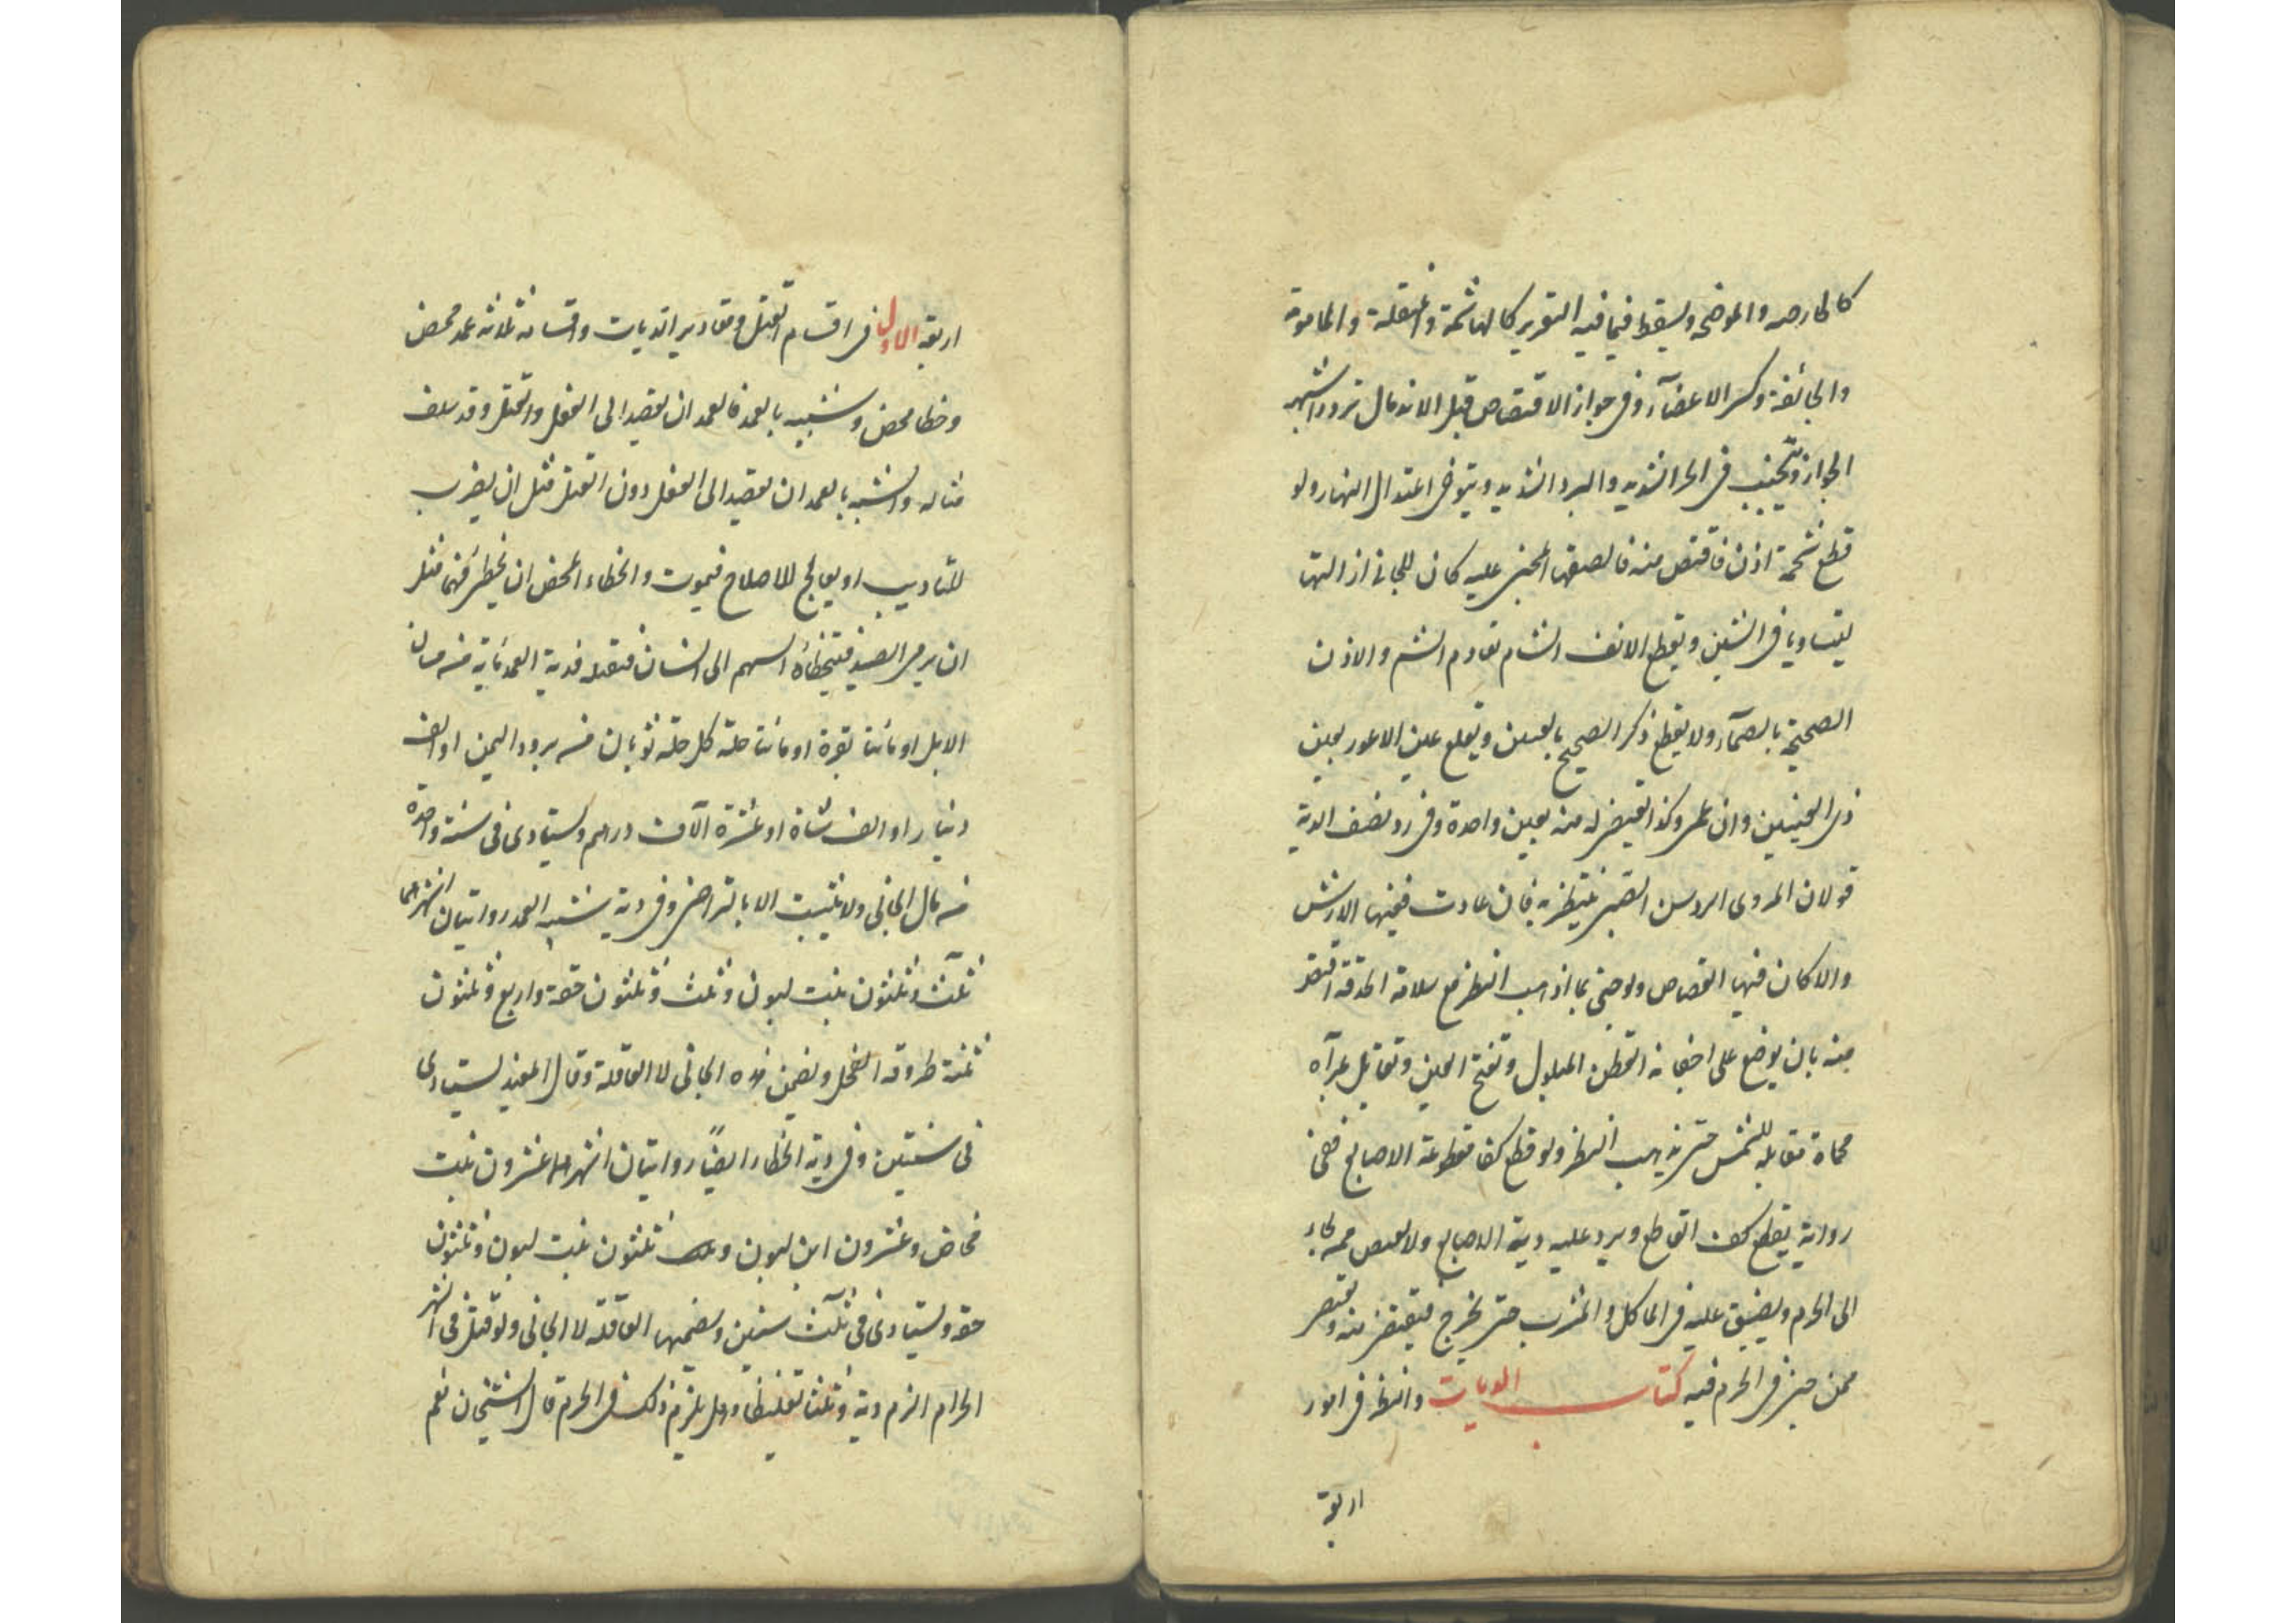 كالحارصه والموضحه ويسقط فيما فيه التغرير كالهاشمة والمنقلة والمامومة
والجائفة وكسر الاعضآء وفى جواز الاقتصاص قبل الاندمال تردد اشبهه
الجواز ويجتنب فى الحر الشديد والبرد الشديد ويتوخى اعتدال النهار ولو
قطع شحمة اذن فاقتص منه فالصقها المجنى عليه كان للجانى ازالتها
ليتساويا فى الشين ويقطع الانف الشام بعادم الشم والاذن
الصحيحة بالصمآء ولا يقطع ذكر الصحيح بالعنين ويقلع عين الاعور بعين
ذى العينين وان عمى وكذا يقتص له منه بعين واحدة وفى رد نصف الدية
قولان المروى الرد سن الصبى ينتظر به فان عادت ففيها الارش
والا كان فيها القصاص ولو جنى بما اذهب النظر مع سلامة الحدقة اقتص
منه بان يوضع على اجفانه القطن المبلول وتفتح العين وتقابل بمرآه
محماة مقابله للشمس حتى يذهب النظر ولو قطع كفا مقطوعة الاصابع ففى
رواية يقطع كف القاطع ويرد عليه دية الاصابع ولا يقتص ممن لجاء
الى الحرم ويضيق عليه فى الماكل والمشرب حتى يخرج فيقتص منه ويقتص
ممن جنى فى الحرم فيه كتاب الديات والنظر فى امور
اربعة
اربعة الاول فى اقسام القتل ومقادير الديات واقسامه ثلاثه عمد محض
وخطا محض وشبيه بالعمد فالعمد ان يقصد الى الفعل والقتل وقد سلف
مثاله والشبيه بالعمد ان يقصد الى الفعل دون القتل مثل ان يضرب
للتاديب او يعالج للاصلاح فيموت والخطاء المحض ان يخطى فيهما مثل
ان يرمى الصيد فيتخطاه السهم الى انسان فيقتله فدية العمد مائة من مسان
الابل او مائتا بقرة او مائتا حلة كل حلة ثوبان من برود اليمن او الف
دينار او الف شاة او عشرة آلاف درهم ويستادى فى سنة واحدة
من مال الجانى ولا يثبت الا بالتراضى وفى دية شبيه العمد روايتان اشهرهما
ثلث وثلثون بنت لبون وثلث وثلثون حقة واربع وثلثون
ثنية طروقة الفحل ويضمن هذه الجانى لا العاقلة وقال المفيد يستادى
فى سنتين وفى دية الخطاء ايضًا روايتان اشهرهما عشرون بنت
مخاض وعشرون ابن لبون وثلثون بنت لبون وثلثون
حقه ويستادى فى ثلث سنين ويضمنها العاقله لا الجانى ولو قتل فى الشهر
الحرام الزم دية وثلثا تغليظا وهل يلزم ذلك فى الحرم قال الشيخان نعم